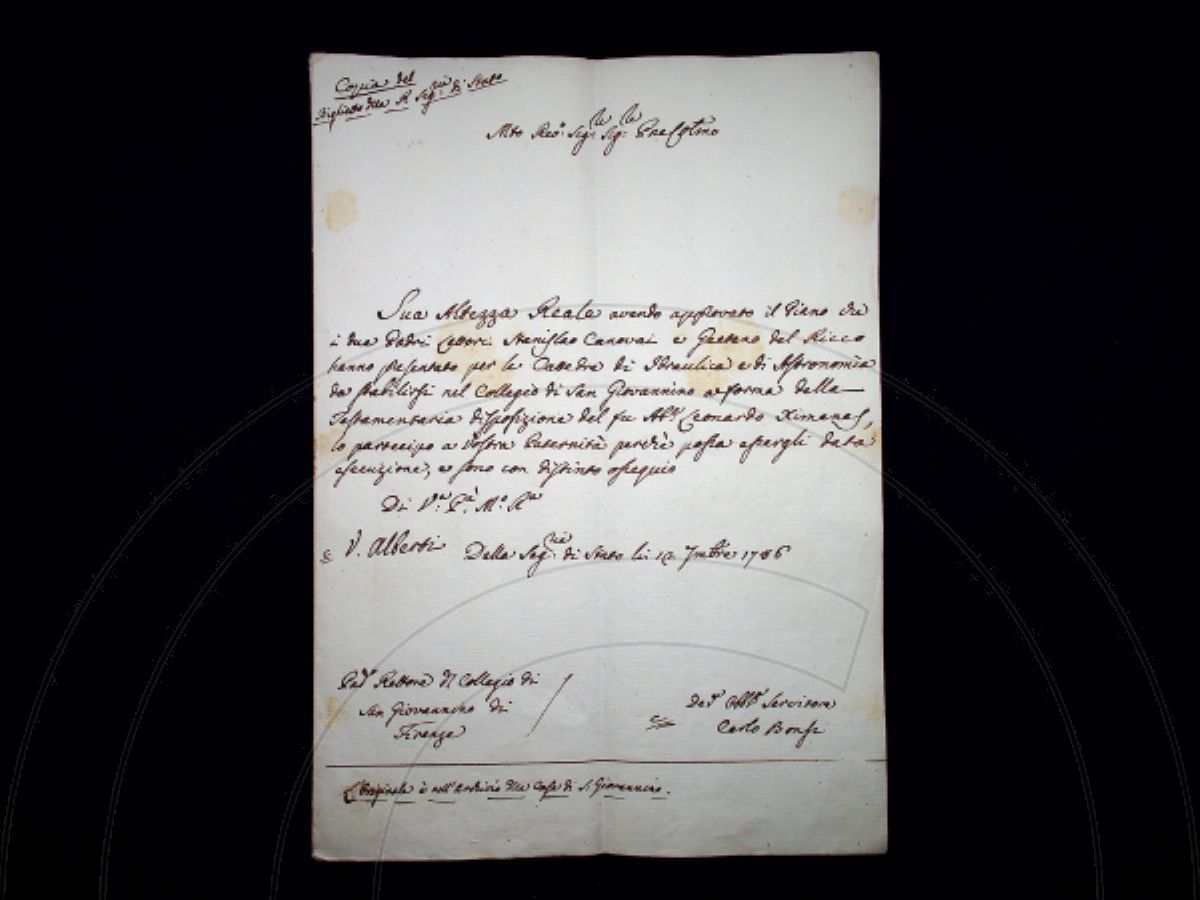 Copia del
Biglietto della R. Seg.ria di Stato
Mto Rev: Sig:re Sig:re Pne Col.mo
Sua Altezza Reale avendo approvato il Piano che
i due Padri Lettori Stanislao Canovai e Gaetano del Ricco
hanno presentato per le Cattedre di Idraulica e di Astronomia
da stabilirsi nel Collegio di San Giovannino a forma della
Testamentaria disposizione del fu Ab.e Leonardo Ximenes,
lo partecipo a Vostra Paternità perchè possa essergli data
esecuzione, e sono con distinto ossequio
Di V.a P.à M.o R.a
V. Alberti Dalla Seg.ria di Stato li 12 1786
Pad.e Rettore del Collegio di
San Giovannino di
Firenze
Dev.o Obb.o Servitore
Carlo Bonsi
L'Originale è nell'Archivio della Casa di S. Giovannino.